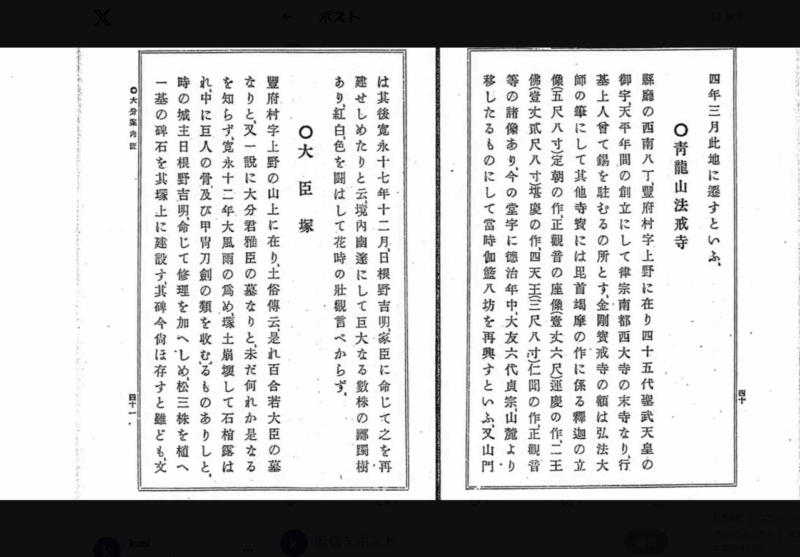 ポスト
四年三月此地に遷すといふ、
〇青龍山法戒寺
縣廳の西南八丁、豐府村字上野に在り四十五代聖武天皇の
御宇、天平年間の創立にして律宗南都西大寺の末寺なり、行
基上人曾て錫を駐むるの所とす、金剛寶戒寺の額は弘法大
師の筆にして其他寺寶には毘首竭摩の作に係る釋迦の立
像(五尺八寸)定朝の作、正觀音の座像(壹丈六尺)運慶の作、二王
佛(壹丈貳尺八寸)堪慶の作、四天王(三尺八寸)仁聞の作、正觀音
等の諸像あり、今の堂宇に德治年中、大友六代貞宗、山麓より
移したるものにして當時伽籃八坊を再興すといふ、又山門
四十
は其後寛永十七年十二月、日根野吉明、家臣に命じて之を再
建せしめたりと云、境內幽邃にして巨大なる數株の躑躅樹
あり、紅白、色を鬪はして花時の壯觀言べからず、
〇大臣塚
豐府村字上野の山上に在り、土俗傳云、是れ百合若大臣の墓
なりと、又一說に大分君雅臣の墓なりと、未だ何れか是なる
を知らず、寬永十二年大風雨の爲め、塚土崩壞して石棺露は
れ、中に巨人の骨、及び甲冑刀劍の類を收む、るものありしと、
時の城主日根野吉明、命じて修理を加へしめ、松三株を植へ
一基の碑石を其塚上に建設す、其碑今尙ほ存すと雖ども、文
〇大分案內記
四十一
kuni
返信をポスト